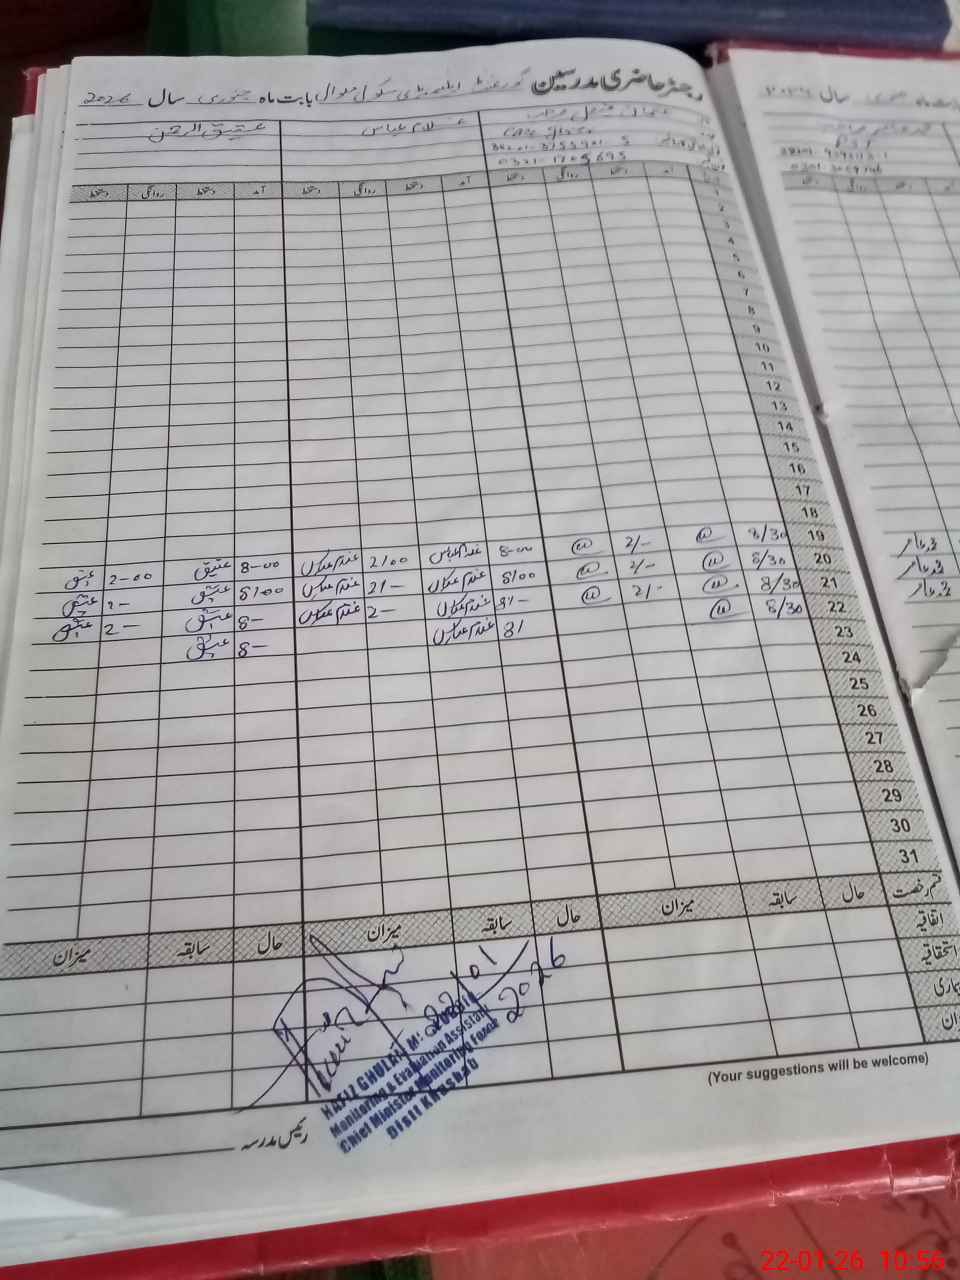 رجسٹر حاضری مدرسین گورنمنٹ ایلیمنٹری سکول بابت ماہ جنوری سال 2026
غلام عباس عتیق الرحمن
0321-1705695
آمد دستخط روانگی دستخط آمد دستخط روانگی دستخط آمد دستخط روانگی دستخط
2
3
4
5
6
7
8
9
10
11
12
13
14
15
16
17
18
19 8/30 2/- 8-00 غلام عباس 2/00 غلام عباس 8-00 عتیق 2-00 عتیق
20 8/30 2/- 8/00 غلام عباس 2/- غلام عباس 8/00 عتیق 2- عتیق
21 8/30 2/- 8/- غلام عباس 2- غلام عباس 8- عتیق 2- عتیق
22 8/30 8/ غلام عباس 8- عتیق
23
24
25
26
27
28
29
30
31
قسم رخصت حال سابقہ میزان حال سابقہ میزان حال سابقہ میزان
اتفاقیہ
استحقاقیہ
22/01
2026
HAFIZ GHULAM
Monitoring & Evaluation Assistant
Chief Minister Monitoring Force
Distt Khushab
(Your suggestions will be welcome)
رئیس مدرسہ
سال
محمد عامر
محمد عامر
محمد عامر
22-01-26 10:56